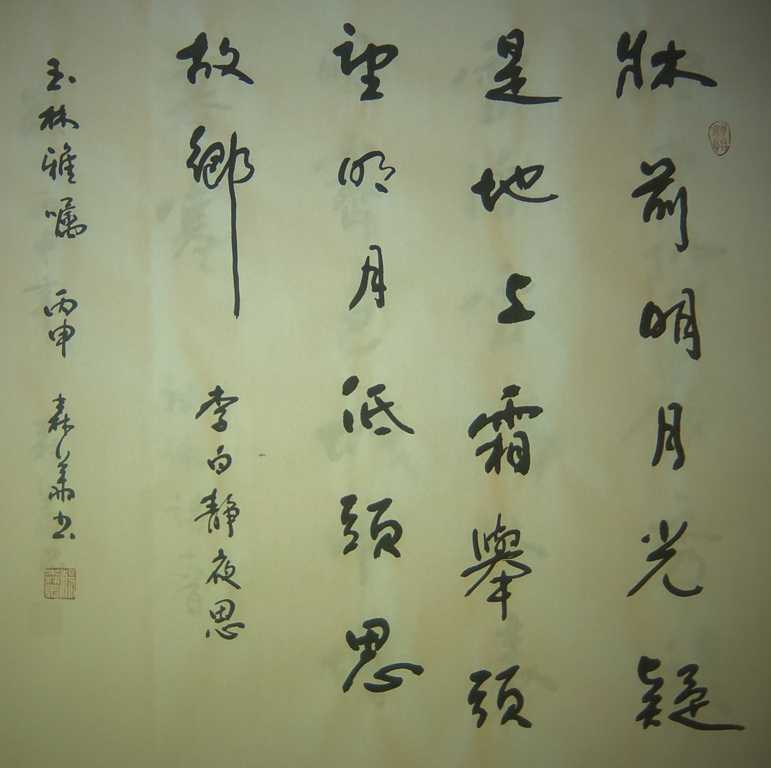 牀前明月光疑
是地上霜舉頭
望明月低頭思
故鄉 李白靜夜思
玉林雅嘱 丙申 森華书